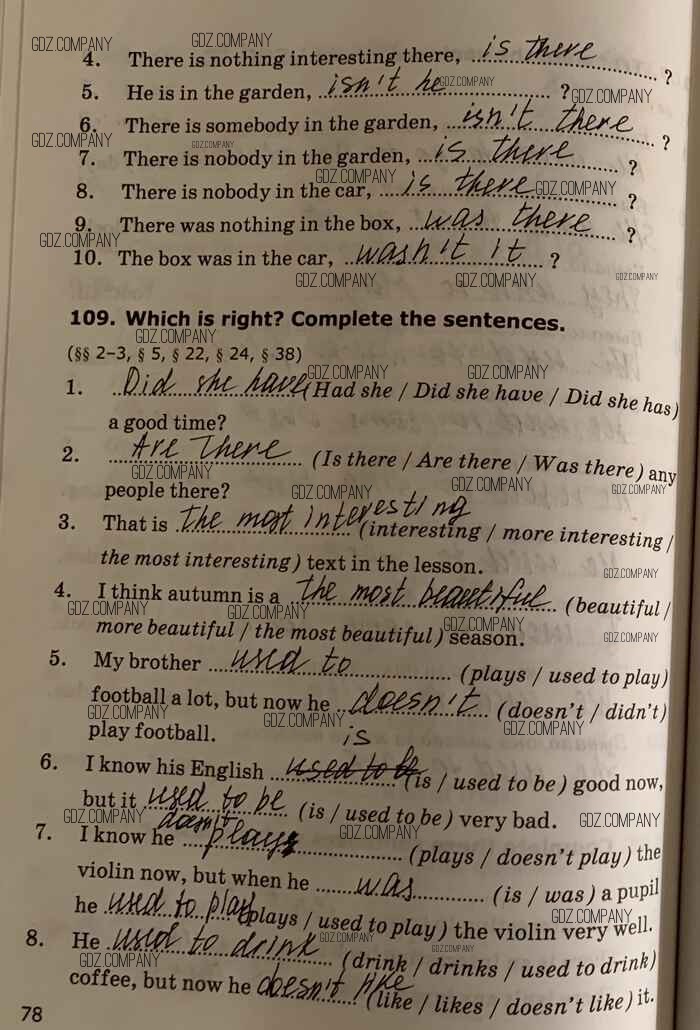 GDZ.COMPANY GDZ.COMPANY
4. There is nothing interesting there, is there ?
5. He is in the garden, isn't he ? GDZ.COMPANY GDZ.COMPANY
6. There is somebody in the garden, isn't there ?
GDZ.COMPANY GDZ.COMPANY
7. There is nobody in the garden, is there ?
GDZ.COMPANY GDZ.COMPANY
8. There is nobody in the car, is there ?
9. There was nothing in the box, was there ?
GDZ.COMPANY
10. The box was in the car, wasn't it ?
GDZ.COMPANY GDZ.COMPANY GDZ.COMPANY
109. Which is right? Complete the sentences.
GDZ.COMPANY
(§§ 2–3, § 5, § 22, § 24, § 38)
GDZ.COMPANY GDZ.COMPANY
1. Did she have (Had she / Did she have / Did she has)
a good time?
2. Are There (Is there / Are there / Was there) any
GDZ.COMPANY GDZ.COMPANY GDZ.COMPANY GDZ.COMPANY
people there?
3. That is The most interesting (interesting / more interesting /
the most interesting) text in the lesson.
GDZ.COMPANY
4. I think autumn is a the most beautiful (beautiful /
GDZ.COMPANY GDZ.COMPANY GDZ.COMPANY GDZ.COMPANY
more beautiful / the most beautiful) season.
5. My brother used to (plays / used to play)
football a lot, but now he doesn't (doesn't / didn't)
GDZ.COMPANY GDZ.COMPANY GDZ.COMPANY
play football.
is
6. I know his English used to be (is / used to be) good now,
but it used to be (is / used to be) very bad.
GDZ.COMPANY GDZ.COMPANY GDZ.COMPANY
doesn't
7. I know he plays (plays / doesn't play) the
violin now, but when he was (is / was) a pupil
he used to play (plays / used to play) the violin very well.
GDZ.COMPANY
8. He used to drink (drink / drinks / used to drink)
GDZ.COMPANY GDZ.COMPANY GDZ.COMPANY
coffee, but now he doesn't like (like / likes / doesn't like) it.
78